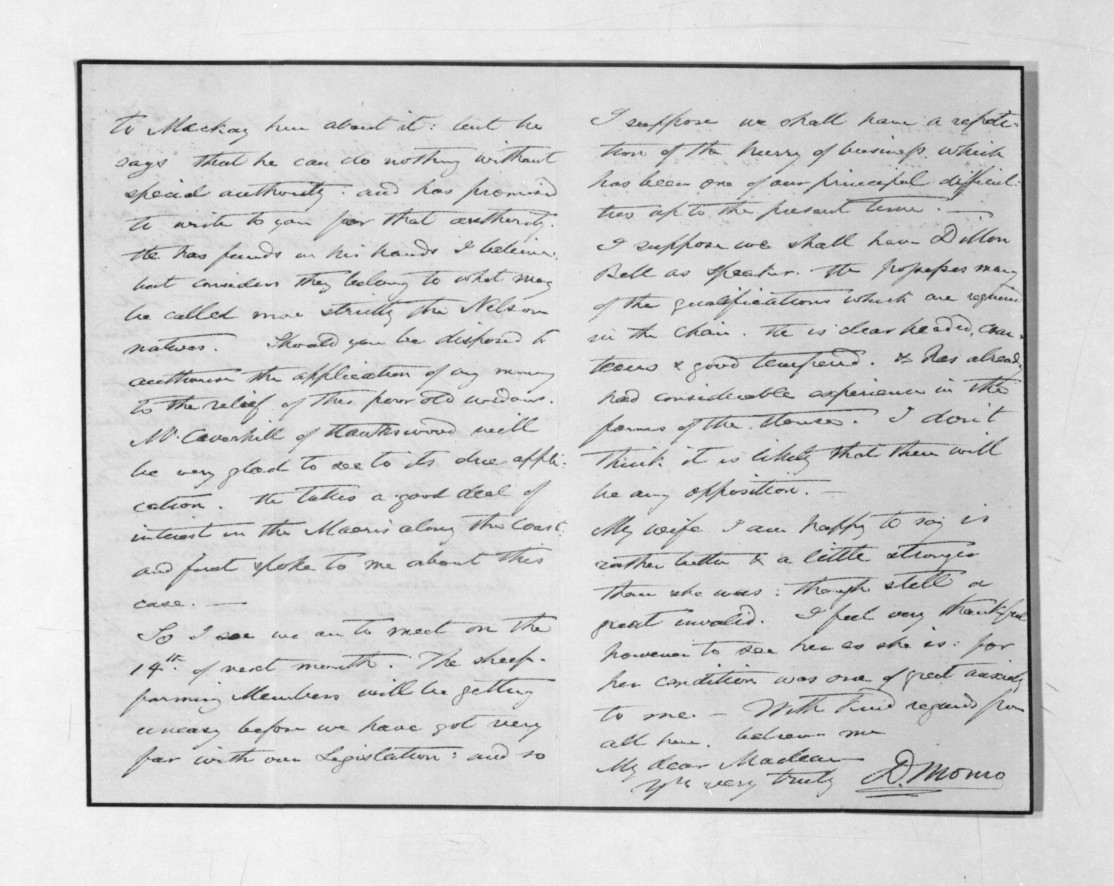 to Mackay here about it: but he
says that he can do nothing without
special authority: and has promised
to write to you for that authority.
He has funds in his hands I believe,
but considers they belong to what may
be called more strictly the Nelson
natives. Should you be disposed to
authorise the application of any money
to the relief of this poor old widow.
Mr Caverhill of Hawkswood will
be very glad to see to its due appli-
cation. He takes a good deal of
interest in the Maoris along the Coast:
and first spoke to me about this
case. —
So I see we are to meet on the
14th. of next month. The sheep-
farming Members will be getting
uneasy before we have got very
far with our Legislation: and so
I suppose we shall have a repeti-
tion of the hurry of business which
has been one of our principal difficul-
ties up to the present time. —
I suppose we shall have Dillon
Bell as Speaker. He possesses many
of the qualifications which are required
in the Chair. He is clear headed, cour-
teous & good tempered. & has already
had considerable experience in the
forms of the House. I don't
think it is likely that there will
be any opposition. —
My wife I am happy to say is
rather better & a little stronger
than she was: though still a
great invalid. I feel very thankful
however to see her as she is: for
her condition was one of great anxiety
to me. — With kind regards from
all here. believe me
My dear Maclean
Yrs very truly D. Monro